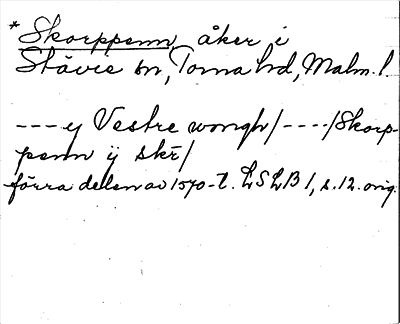 * Skorppenn, åker i
Stävie sn, Torna hd, Malm. l.
---- y Vestre wongh/----/Skorp-
penn ij skr̄/
förra delen av 1570-t. LSLB 1, s. 12. orig.